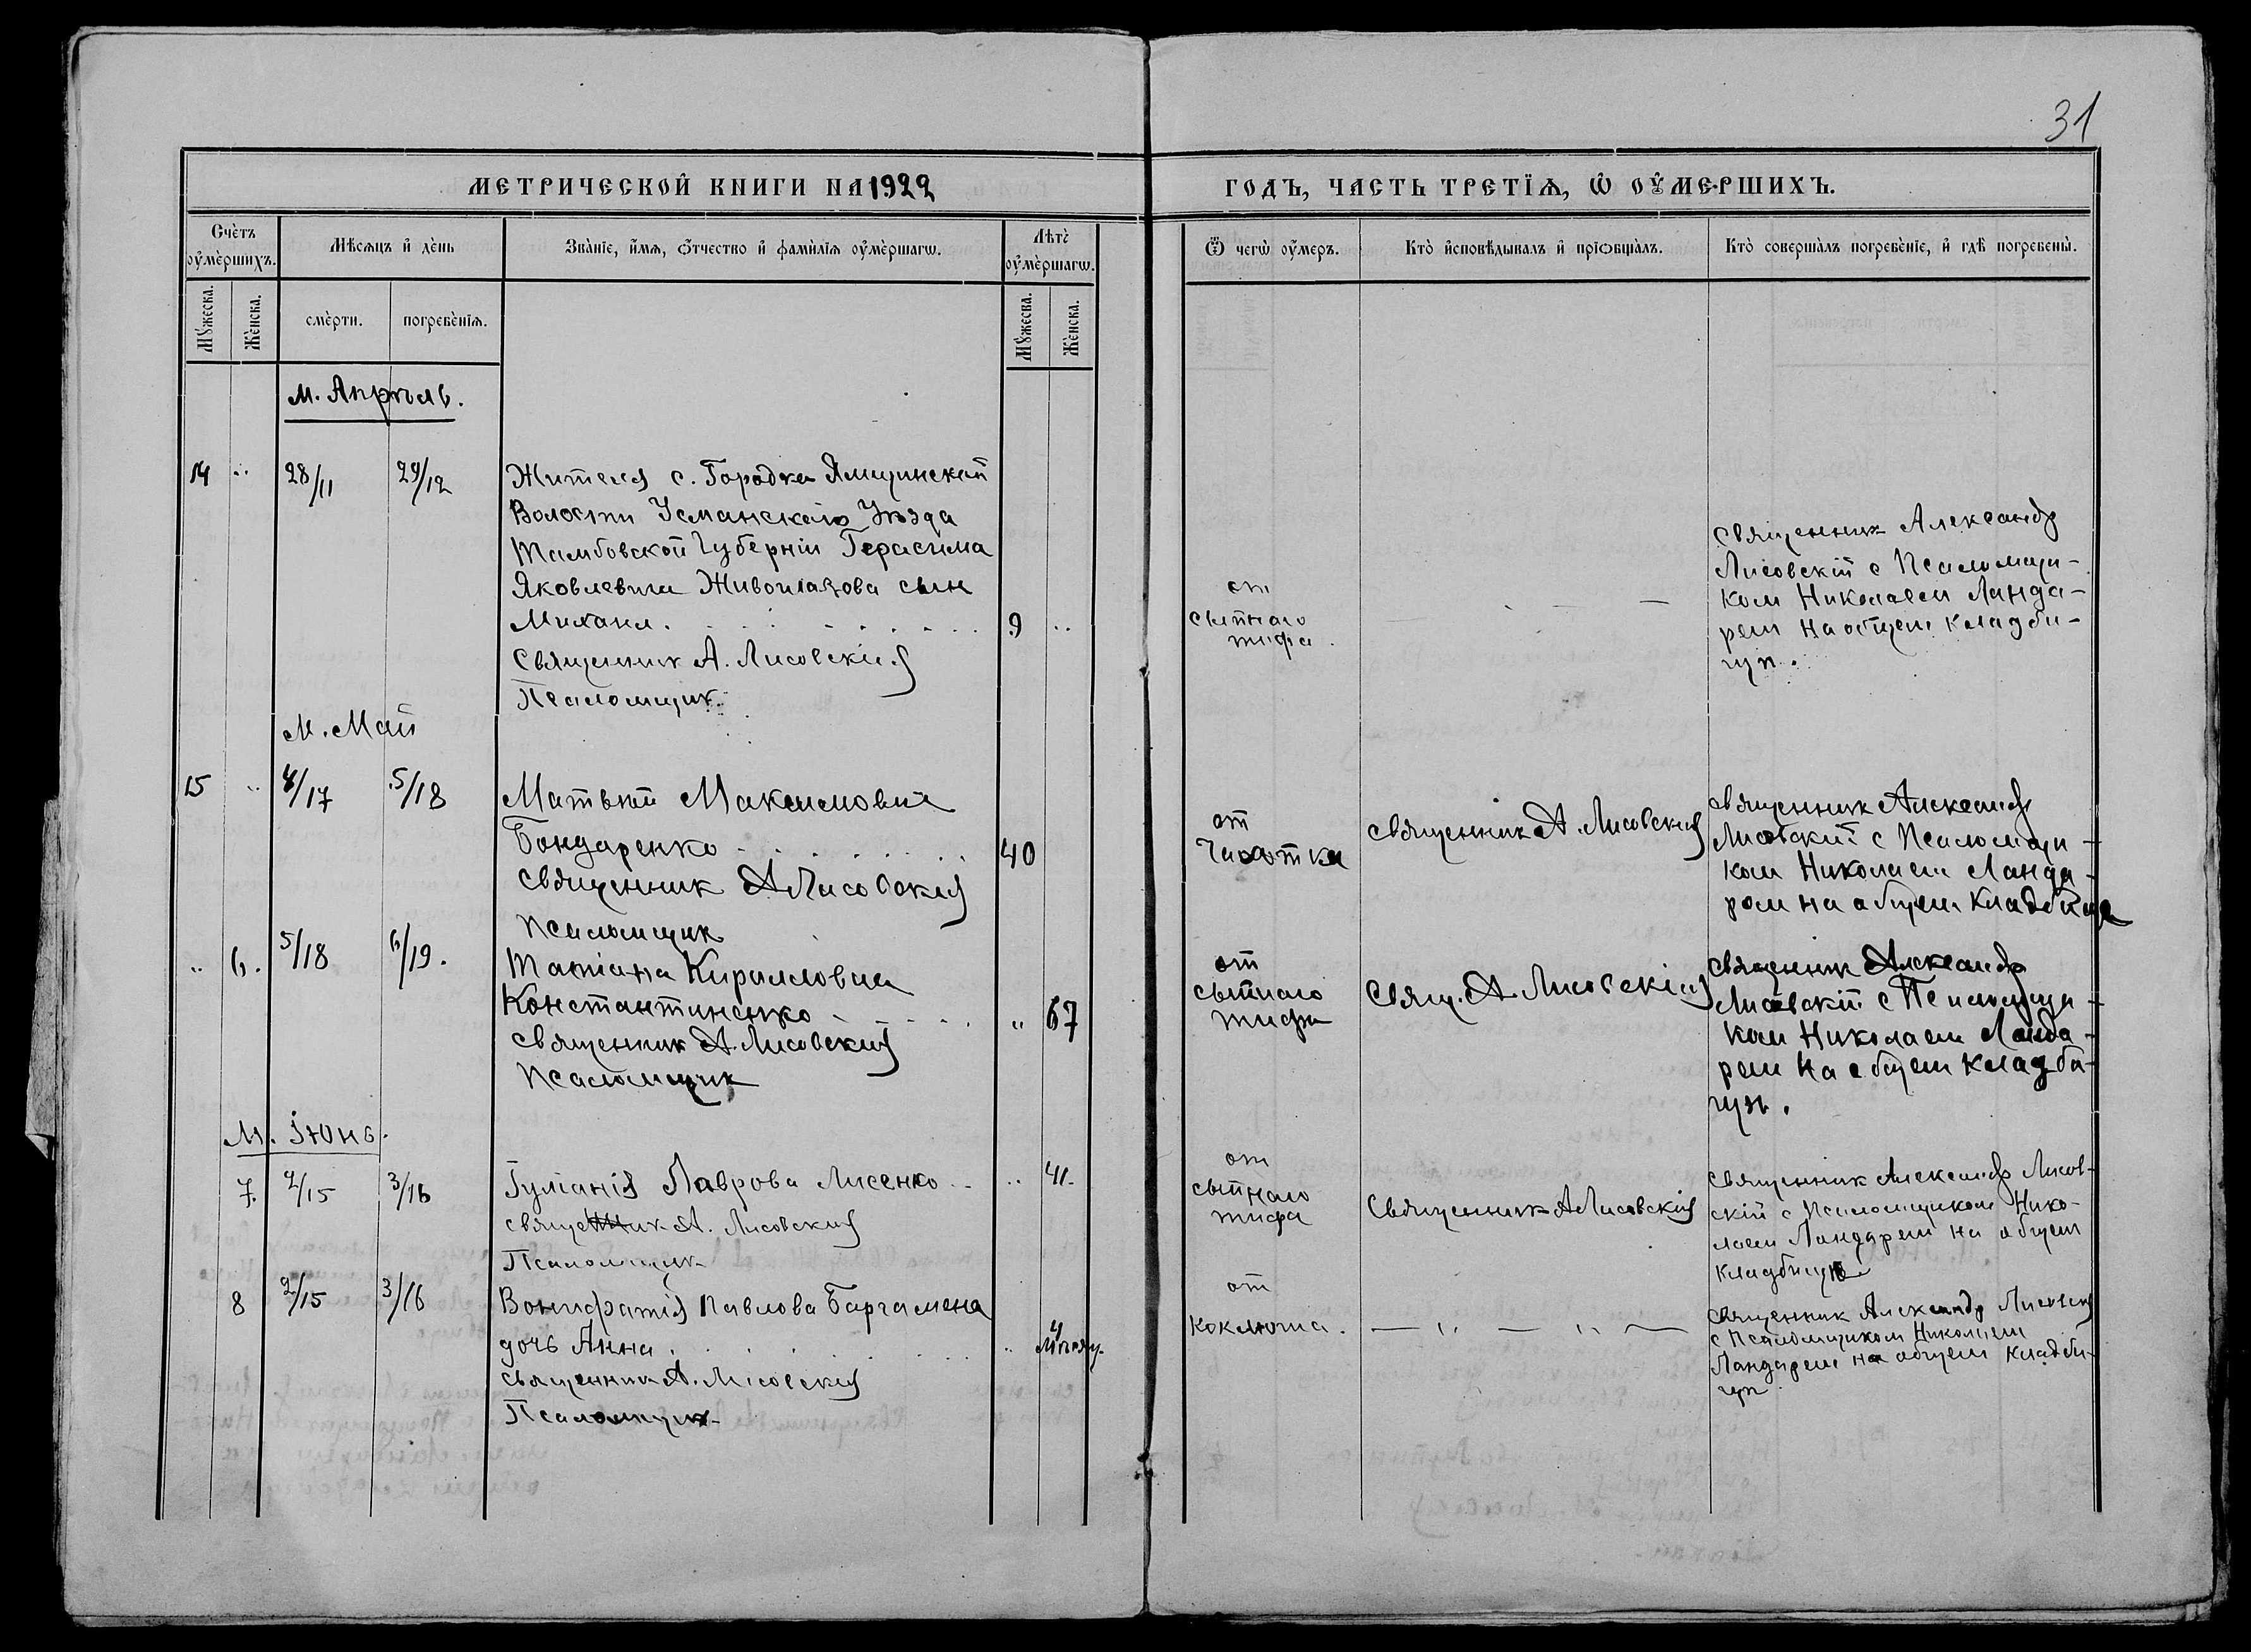 31
МЕТРИЧЕСКОЙ КНИГИ НА 1922
ГОДЪ, ЧАСТЬ ТРЕТІѦ, Ѡ ОУМЕРШИХЪ.
Счетъ оумершихъ.
Мѣсяцъ и день
Званіе, имя, отчество и фамилія оумершагѡ.
Лѣтъ оумершагѡ.
Ѿ чегѡ оумеръ.
Кто исповѣдывалъ и пріобщалъ.
Кто совершалъ погребеніе, и гдѣ погребены.
Мꙋжеска.
Женска.
смерти.
погребенія.
Мꙋжеска.
Женска.
м. Апрѣль.
14 .. 28/11 29/12
Жителя с. Городка Ямщинской
Волости Усманскаго Уѣзда
Тамбовской Губерніи Герасима
Яковлевича Живоглазова сын
Михаил. 9 ..
Священник А. Лисовскій
Псаломщик
от
сыпнаго
тифа.
Священник Александр
Лисовскій с Псаломщи-
ком Николаем Ланда-
рем на общем кладби-
щѣ.
М. Май
15 .. 4/17 5/18
Матвѣй Максимович
Бондаренко 40
Священник А Лисовскій
Псаломщик
от
Чахотки
Священник А. Лисовскій
Священник Александр
Лисовский с Псаломщи-
ком Николаем Ланда-
ром на общем кладбище
.. 6. 5/18 6/19.
Татіана Кирилловна
Константиненко .. 67
Священник А. Лисовский
Псаломщик
от
сыпнаго
тифа
Свящ. А Лисовскій
Священник Александр
Лисовскій с Псаломщи-
ком Николаем Ланда-
рем на общем кладби-
щѣ.
М. Іюнь.
7. 2/15 3/16
Гуліанія Лаврова Лисенко .. 41.
Священник А. Лисовский
Псаломщик
от
сыпнаго
тифа
Священник А Лисовскій
Священник Александр Лисов-
скій с Псаломщиком Нико-
лаем Ландарем на общем
кладбищѣ
8 2/15 3/16
Вонифатія Павлова Баргамена
дочь Анна. .. 4 мѣсяц.
Священник А. Лисовский
Псаломщик
от
коклюша.
— " — " —
Священник Александр Лисовскій
с Псаломщиком Николаем
Ландарем на общем кладби-
щѣ